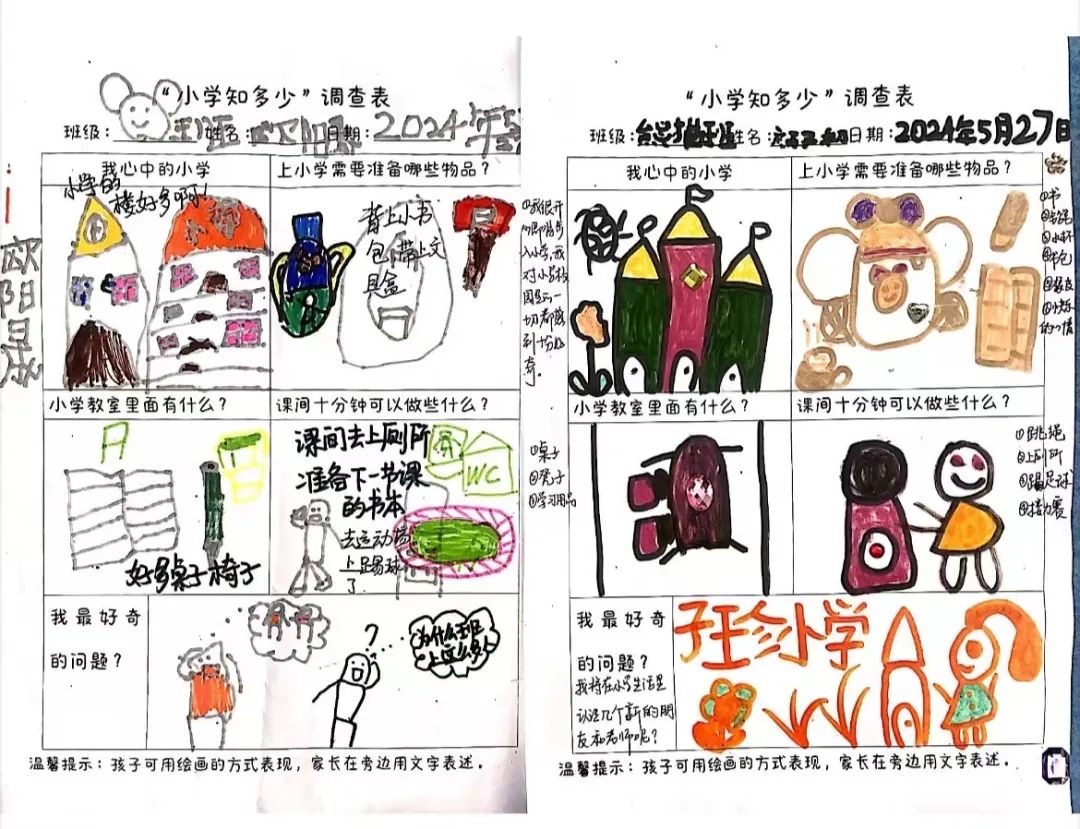 “小学知多少”调查表
班级: 姓名: 日期: 2024年5
我心中的小学
小学的
楼好多啊!
上小学需要准备哪些物品?
背上小书
包,带上文
具盒
①我很开
入小学,我
对小学校
园里的一
切都感
到十分好
奇。
欧
阳
小学教室里面有什么?
好多桌子椅子
课间十分钟可以做些什么?
课间去上厕所
准备下一节课
的书本
去运动场
上踢球
了
WC
①桌子
②凳子
③学习用品
我最好奇
的问题?
?
为什么班
上这么多
温馨提示:孩子可用绘画的方式表现,家长在旁边用文字表述。
“小学知多少”调查表
班级: 姓名: 日期: 2024年5月27日
我心中的小学
上小学需要准备哪些物品?
①书
③水杯
④书包
小学教室里面有什么?
课间十分钟可以做些什么?
①跳绳
②上厕所
③踢足球
④接力赛
我最好奇
的问题?
我将在小学生活里
认识几个新的朋
友和老师呢?
温馨提示:孩子可用绘画的方式表现,家长在旁边用文字表述。